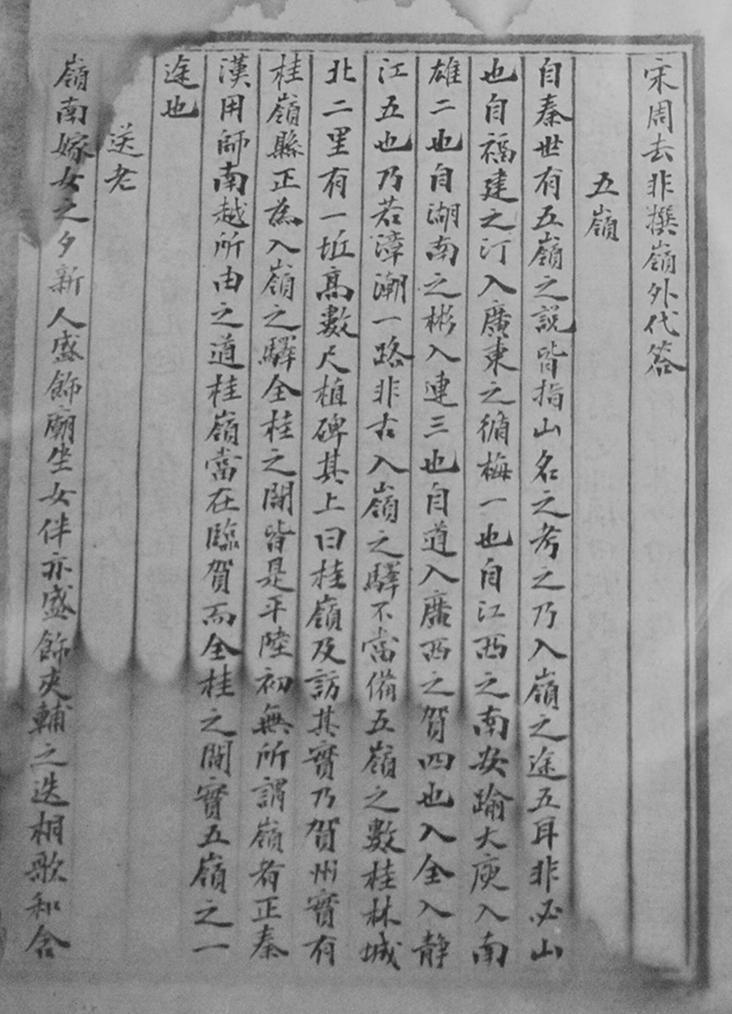 宋周去非撰嶺外代答
五嶺
自秦世有五嶺之説皆指山名之考之乃入嶺之途五耳非必山
也自福建之汀入廣東之循梅一也自江西之南安踰大庾入南
雄二也自湖南之彬入連三也自道入廣西之賀四也入全入静
江五也乃若漳潮一路非古入嶺之驛不當備五嶺之數桂林城
北二里有一坵髙數尺植碑其上曰桂嶺及訪其實乃賀州實有
桂嶺縣正為入嶺之驛全桂之間皆是平陸初無所謂嶺者正秦
漢用師南越所由之道桂嶺當在臨賀而全桂之間實五嶺之一
途也
送老
嶺南嫁女之夕新人盛飾廟坐女伴亦盛飾夾輔之迭相歌和含